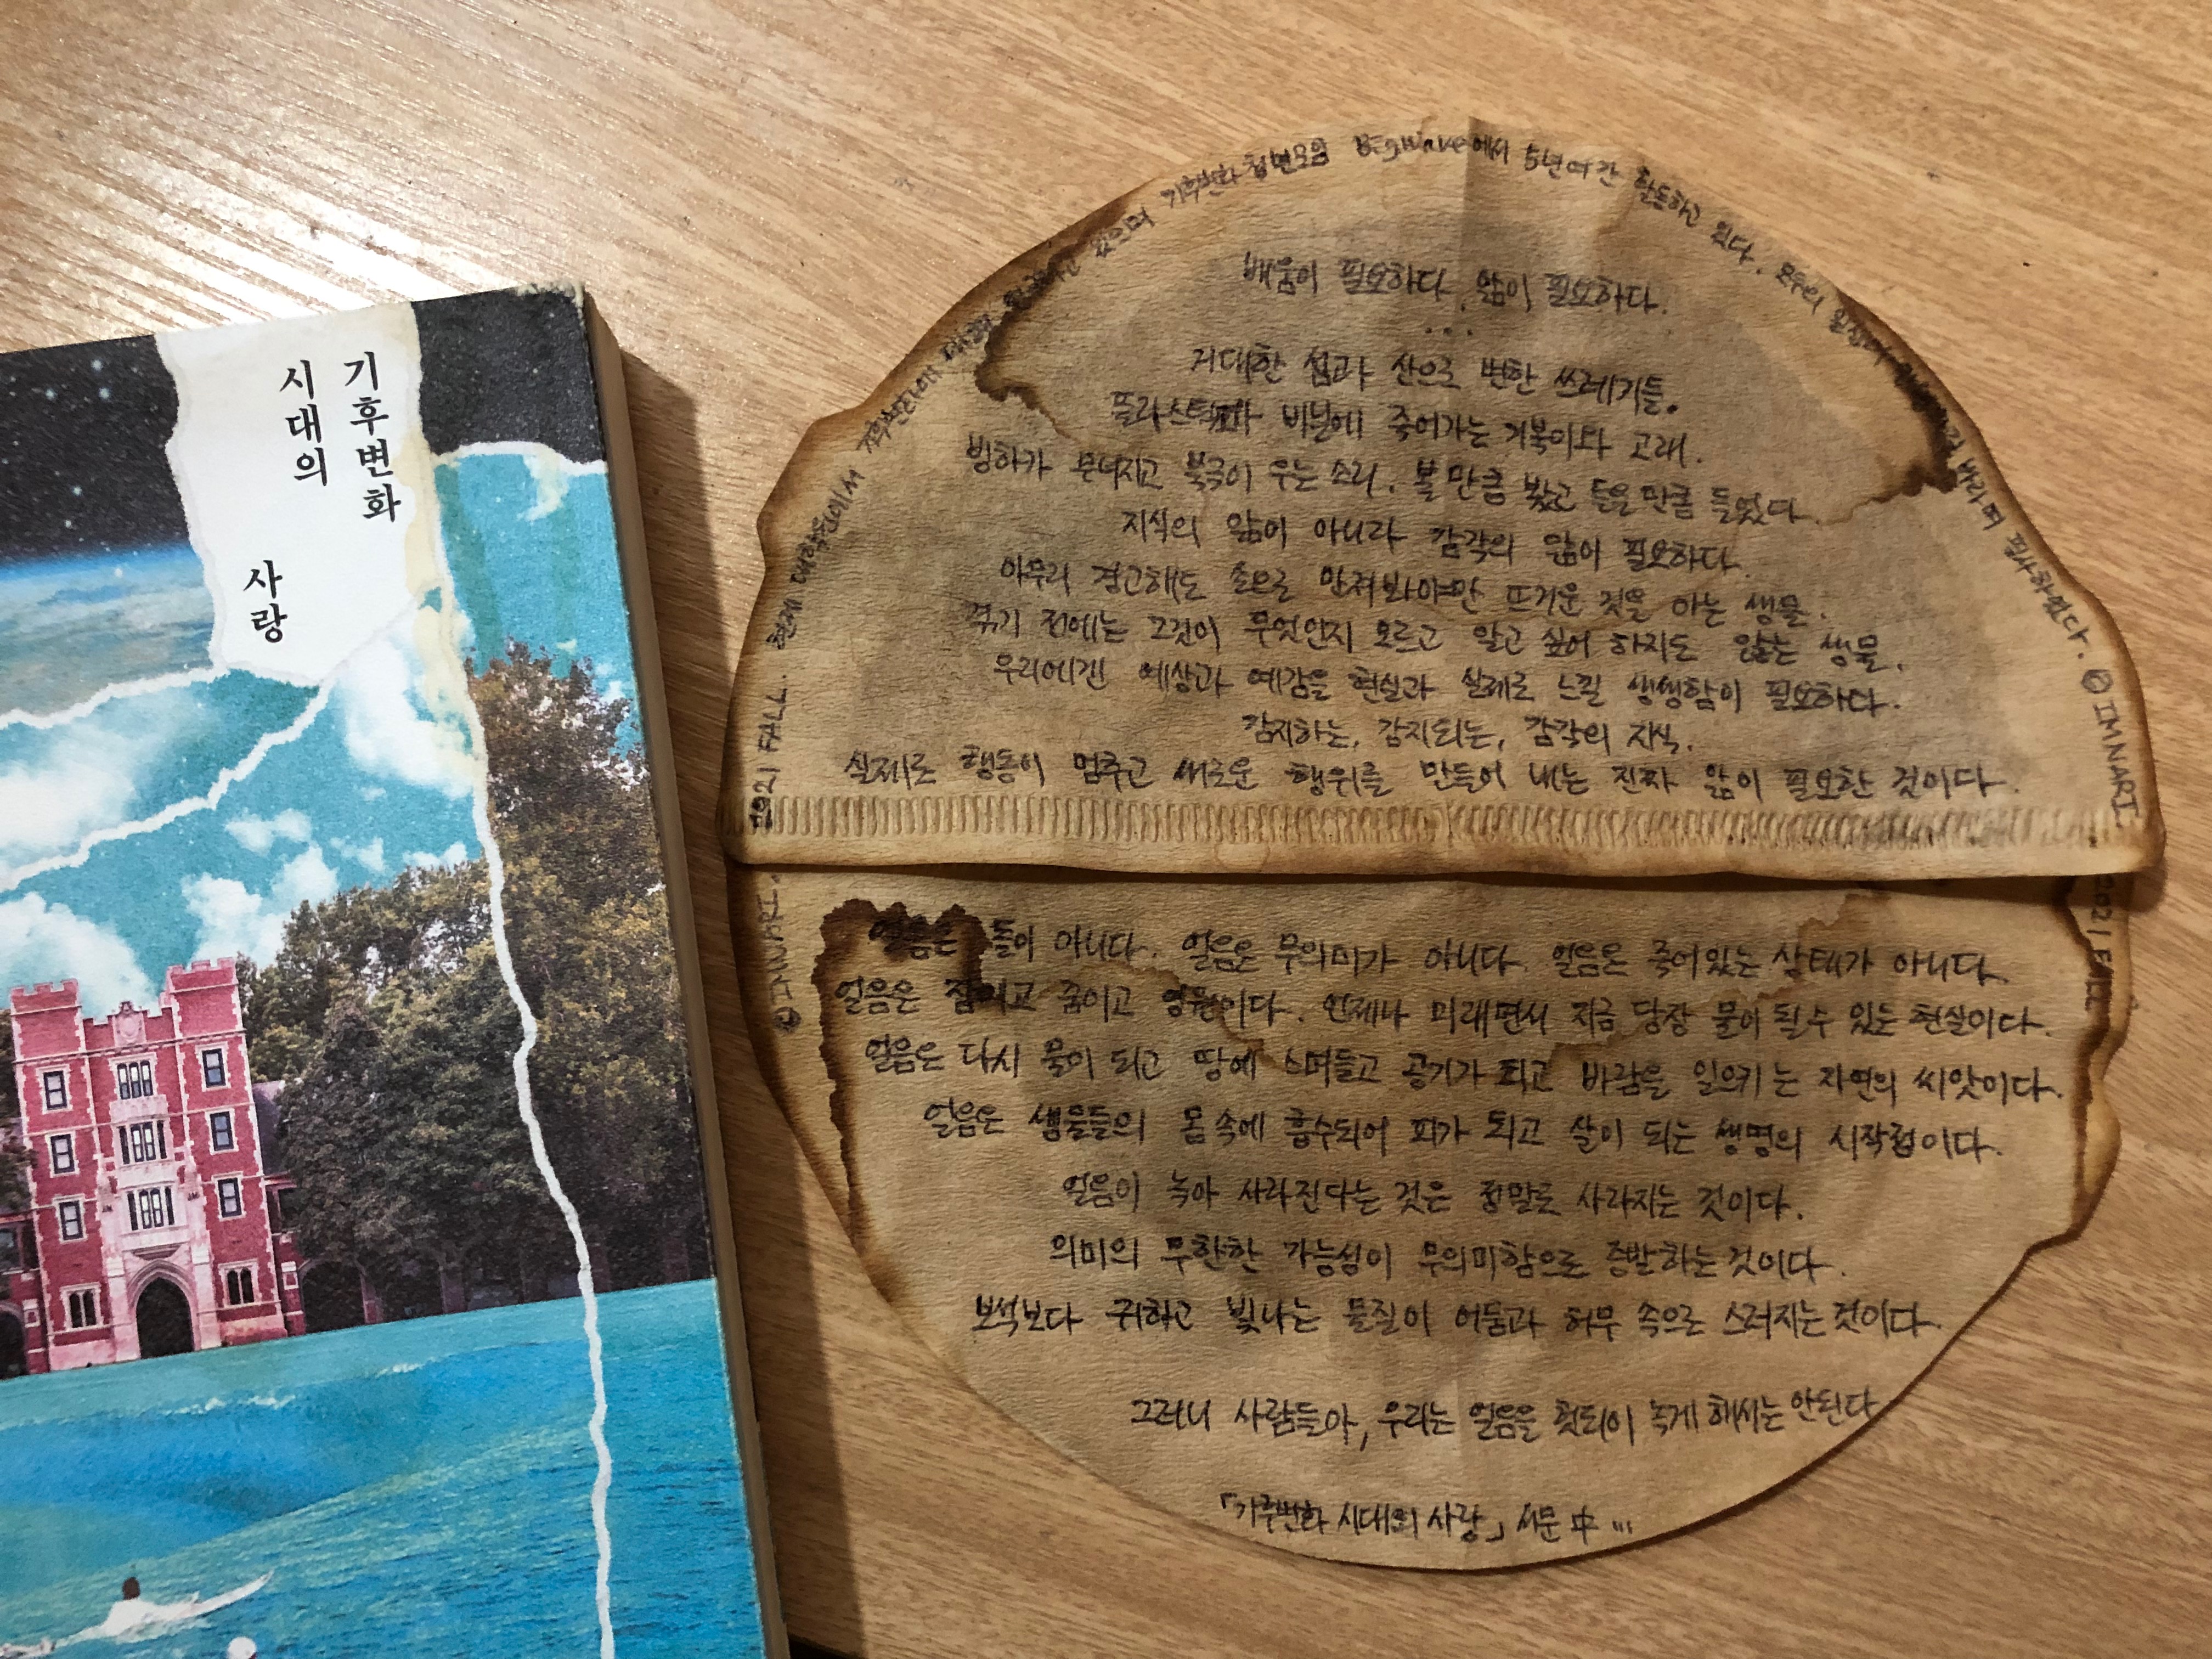 기후변화
시대의
사랑
2021 FALL. 현재 대학원에서 기후변화에 있으며 기후변화 청년모임 BigWave에서 5년여간 활동하고 있다. 모두의 바라며 필사하였다. ©IMNARI
배움이 필요하다. 앎이 필요하다.
...
거대한 섬과 산으로 변한 쓰레기들.
플라스틱과 비닐에 죽어가는 거북이와 고래.
빙하가 무너지고 북극이 우는 소리. 볼 만큼 봤고 들을 만큼 들었다.
지식의 앎이 아니라 감각의 앎이 필요하다.
아무리 경고해도 손으로 만져봐야만 뜨거운 것을 아는 생물.
겪기 전에는 그것이 무엇인지 모르고 알고 싶어 하지도 않는 생물.
우리에겐 예상과 예감을 현실과 실제로 느낄 생생함이 필요하다.
감지하는, 감지되는, 감각의 지식.
실제로 행동이 멈추고 새로운 행위를 만들어 내는 진짜 앎이 필요한 것이다.
©IMNARI.
2021 FALL
얼음은 돌이 아니다. 얼음은 무의미가 아니다. 얼음은 죽어있는 상태가 아니다.
얼음은 잠이고 꿈이고 영원이다. 언제나 미래면서 지금 당장 물이 될 수 있는 현실이다.
얼음은 다시 물이 되고 땅에 스며들고 공기가 되고 바람을 일으키는 자연의 씨앗이다.
얼음은 생물들의 몸 속에 흡수되어 피가 되고 살이 되는 생명의 시작점이다.
얼음이 녹아 사라진다는 것은 정말로 사라지는 것이다.
의미의 무한한 가능성이 무의미함으로 증발하는 것이다.
보석보다 귀하고 빛나는 물질이 어둠과 허무 속으로 스러지는 것이다.
그러니 사람들아, 우리는 얼음을 헛되이 녹게 해서는 안된다
「기후변화 시대의 사랑」 서문 中 ...